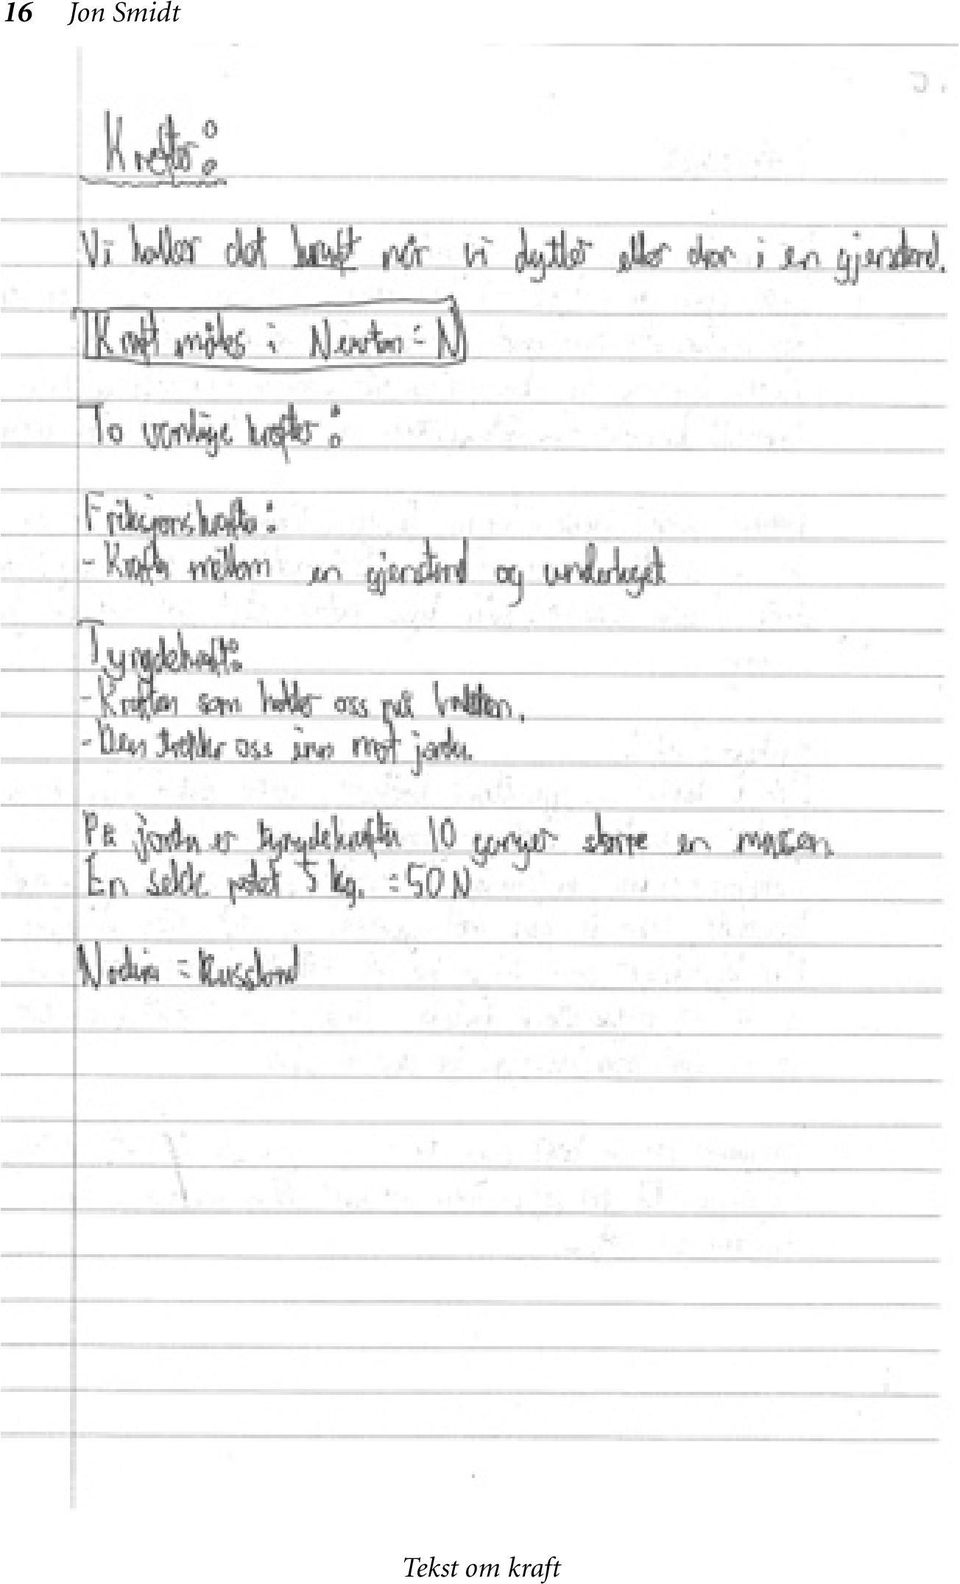 16 Jon Smidt
Krefter:
Vi kaller det kraft når vi dytter eller drar i en gjenstand.
Kraft måles i Newton = N
To vanlige krefter:
Friksjonskrafta:
- Krafta mellom en gjenstand og underlaget
Tyngdekraft:
- Kraften som holder oss på bakken.
- Den trekker oss inn mot jorda.
På jorda er tyngdekrafta 10 ganger større en massen.
En sekk potet 5 kg. = 50 N
= Russland
Tekst om kraft